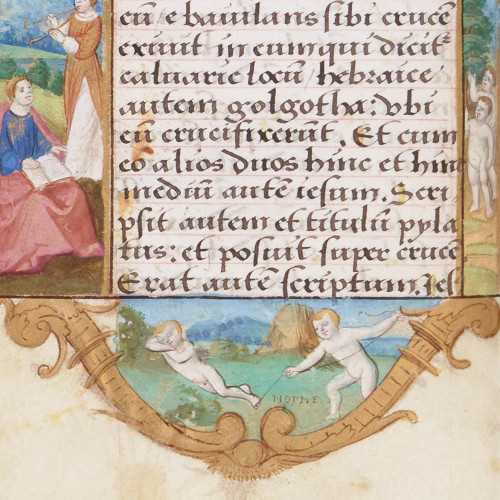 eū / e baiulans sibi crucē
exivit in eum qui dicitᷣ
calvarie locū / hebraice
autem golgotha: vbi
eū crucifixerūt. Et cum
eo alios duos hinc et hinc
mediū autē iesum. Scri
psit autem et titulū pyla
tus: et posuit super crucē
Erat autē scriptum. Jes